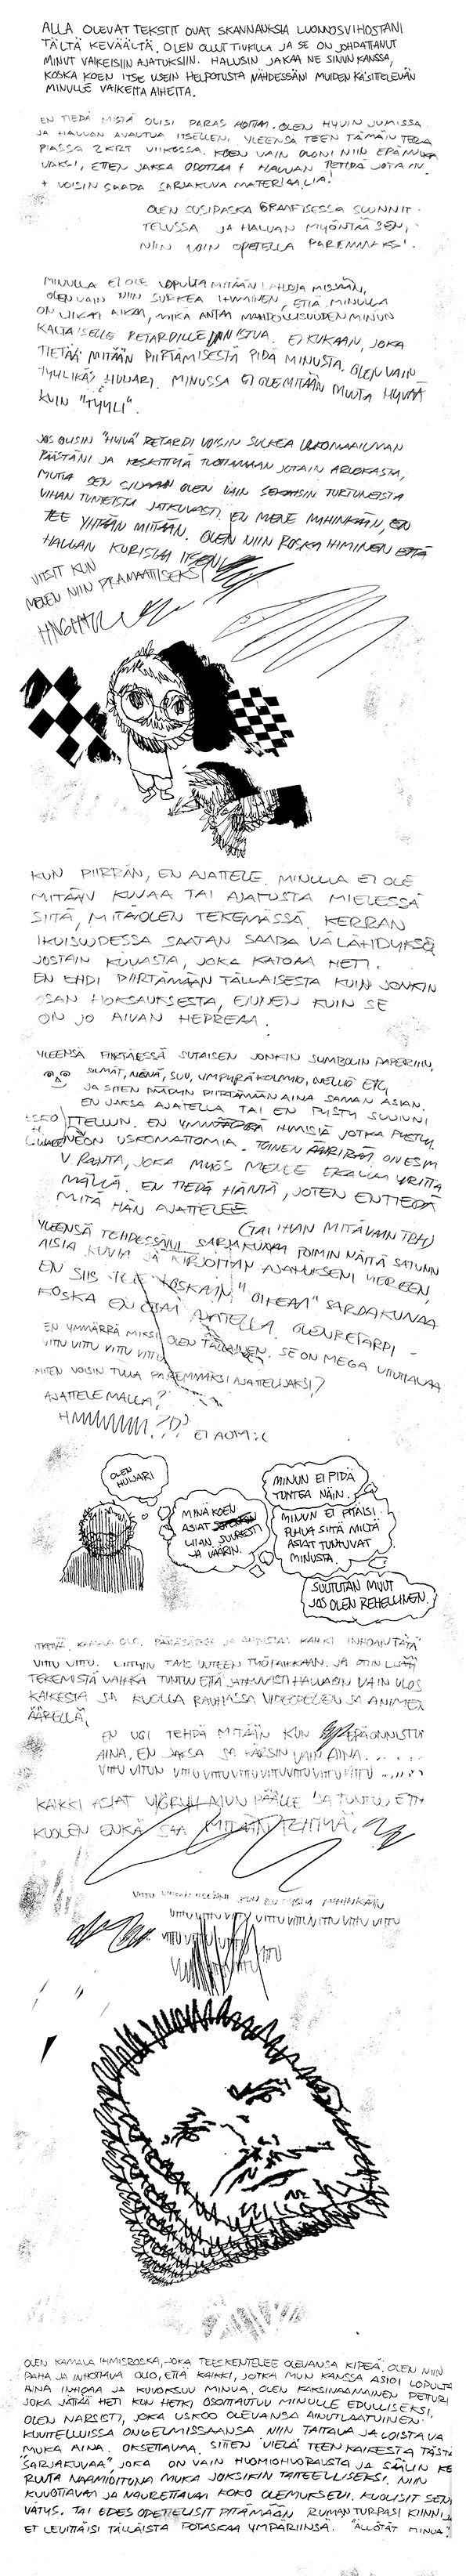 ALLA OLEVAT TEKSTIT OVAT SKANNAUKSIA LUONNOSVIHOSTANI
TÄLTÄ KEVÄÄLTÄ. OLEN OLLUT TIUKILLA JA SE ON JOHDATTANUT
MINUT VAIKEISIIN AJATUKSIIN. HALUSIN JAKAA NE SINUN KANSSA,
KOSKA KOEN ITSE USEIN HELPOTUSTA NÄHDESSÄNI MUIDEN KÄSITTELEVÄN
MINULLE VAIKEITA AIHEITA.
EN TIEDÄ MISTÄ OLISI PARAS ALOITTAA. OLEN HYVIN JUMISSA
JA HALUAN AVAUTUA ITSELLENI. YLEENSÄ TEEN TÄMÄN TERA
PIASSA 2 KRT VIIKOSSA. KOEN VAIN OLONI NIIN EPÄMUKA
VAKSI, ETTEN JAKSA ODOTTAA + HALUAN TEHDÄ JOTAIN.
+ VOISIN SAADA SARJAKUVA MATERIAALIA!
OLEN SUSIPASKA GRAAFISESSA SUUNNIT-
TELUSSA JA HALUAN MYÖNTÄÄ SEN,
NIIN VOIN OPETELLA PAREMMAKSI.
MINULLA EI OLE LOPULTA MITÄÄN LAHJOJA MISSÄÄN,
OLEN VAIN NIIN SURKEA IHMINEN, ETTÄ MINULLA
ON LIIKAA AIKAA, MIKÄ ANTAA MAHDOLLISUUDEN MINUN
KALTAISELLE RETARDILLE ONNISTUA. EI KUKAAN, JOKA
TIETÄÄ MITÄÄN PIIRTÄMISESTÄ PIDÄ MINUSTA. OLEN VAIN
TYYLIKÄS HUIJARI. MINUSSA EI OLE MITÄÄN MUUTA HYVÄÄ
KUIN "TYYLI".
JOS OLISIN "HYVÄ" RETARDI VOISIN SULKEA ULKOMAAILMAN
PÄÄSTÄNI JA KESKITTYÄ TUOTTAMAAN JOTAIN ARVOKASTA,
MUTTA SEN SIJAAN OLEN VAIN SEKAISIN TURTUNEISTA
VIHAN TUNTEISTA JATKUVASTI. EN MENE MIHINKÄÄN, EN
TEE YHTÄÄN MITÄÄN. OLEN NIIN ROSKA IHMINEN ETTÄ
HALUAN KURISTAA ITSENI
VITSIT KUN
MENEN NIIN DRAMAATTISEKSI
KUN PIIRRÄN, EN AJATTELE. MINULLA EI OLE
MITÄÄN KUVAA TAI AJATUSTA MIELESSÄ
SIITÄ, MITÄ OLEN TEKEMÄSSÄ. KERRAN
IKUISUUDESSA SAATAN SAADA VÄLÄHDYKSEN
JOSTAIN KUVASTA, JOKA KATOAA HETI.
EN EHDI PIIRTÄMÄÄN TÄLLAISESTA KUIN JONKIN
OSAN HOKSAUKSESTA, ENNEN KUIN SE
ON JO AIVAN HEPREAA.
YLEENSÄ PIIRTÄESSÄ SUTAISEN JONKIN SYMBOLIN PAPERIIN,
SILMÄT, NENÄ, SUU, YMPYRÄ KOLMIO, NELIÖ ETC,
JA SITEN PÄÄDYN PIIRTÄMÄÄN AINA SAMAN ASIAN.
EN JAKSA AJATELLA TAI EN PYSTY SUUNNI
TTELUUN. EN YMMÄRRÄ IHMISIÄ JOTKA PYSTYY.
USKOMATTOMIA. TOINEN ÄÄRIRAJA ON ESIM
V RANTA, JOKA MYÖS MENEE ERAUUM YRITTÄ
MÄLLÄ. EN TIEDÄ HÄNTÄ, JOTEN EN TIEDÄ
MITÄ HÄN AJATTELEE
(TAI IHAN MITÄ VAAN TBH)
YLEENSÄ TEHDESSÄNI SARJAKUVAA POIMIN NÄITÄ SATUNN
AISIA KUVIA JA KIRJOITAN AJATUKSENI VIEREEN,
EN SIIS TEE KOSKAAN "OIKEAA" SARJAKUVAA
KOSKA EN OSAA AJATELLA. OLEN RETARDI -
EN YMMÄRRÄ MIKSI OLEN TÄLLAINEN. SE ON MEGA VITUTTAVAA
VITTU VITTU VITTU VITTU
MITEN VOISIN TULLA PAREMMAKSI AJATTELIJAKSI?
AJATTELEMALLA?
EI AUTA :(
OLEN
HUIJARI
MINÄ KOEN
ASIAT
LIIAN SUURESTI
JA VÄÄRIN.
MINUN EI PIDÄ
TUNTEA NÄIN.
MINUN EI PITÄISI
PUHUA SIITÄ MILTÄ
ASIAT TUNTUVAT
MINUSTA.
SUUTUTAN MUUT
JOS OLEN REHELLINEN.
KAMALA OLO. PÄÄSÄRKEE JA AHDISTAA KAIKKI INHOAN TÄTÄ
VITTU VITTU. LIITYIN TAAS UUTEEN TYÖPAIKKAAN JA OTIN LISÄÄ
TEKEMISTÄ VAIKKA TUNTUU ETTÄ JATKUVASTI HALUAISIN VAIN ULOS
KAIKESTA JA KUOLLA RAUHASSA VIDEOPELIEN JA ANIMEN
ÄÄRELLÄ.
EN VOI TEHDÄ MITÄÄN KUN EPÄONNISTUN
AINA. EN JAKSA JA KÄRSIN VAIN AINA.....
VITTU VITUN VITTU VITTU VITTU VITTU VITTU VITTU
KAIKKI ASIAT VYÖRYY MUN PÄÄLLE JA TUNTUU ETTÄ
KUOLEN ENKÄ SAA MITÄÄN TEHTYÄ.
VITTU VITTU VITTU VITTU VITTU VITTU VITTU
OLEN KAMALA IHMISROSKA, JOKA TEESKENTELEE OLEVANSA KIPEÄ. OLEN NIIN
PAHA JA INHOTTAVA OLIO, ETTÄ KAIKKI, JOTKA MUN KANSSA ASIOI LOPULTA
AINA INHOAA JA KUVOKSUU MINUA. OLEN KAKSINAAMAINEN PETTURI
JOKA JÄTTÄÄ HETI KUN HETKI OSOITTAUTUU MINULLE EDULLISEKSI.
OLEN NARSISTI, JOKA USKOO OLEVANSA AINUTLAATUINEN
KUVITELLUISSA ONGELMISSAANSA. NIIN TAITAVA JA LOISTAVA
MUKA AINA. OKSETTAVAA. SITTEN VIELÄ TEEN KAIKESTA TÄSTÄ
"SARJAKUVAA", JOKA ON VAIN HUOMIOHUORAUSTA JA SÄÄLIN KE
RUUTA NAAMIOITUNA MUKA JOKSIKIN TAITEELLISEKSI. NIIN
KUVOTTAVAA JA NAURETTAVAA KOKO OLEMUKSENI. KUOLISIT SEN
VÄTYS. TAI EDES OPETTELISIT PITÄMÄÄN RUMAN TURPASI KIINNI
ET LEVITTÄISI TÄLLÄISTÄ POTASKAA YMPÄRIINSÄ. "ÄLLÖTÄT MINUA."